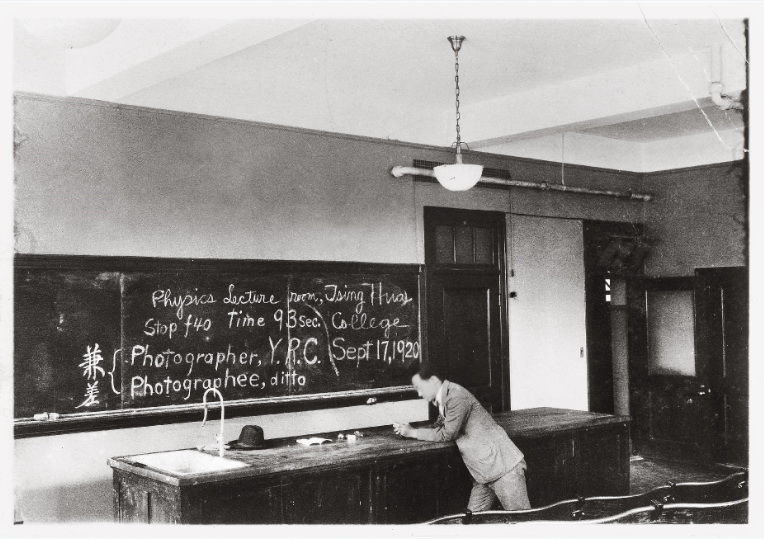 Physics Lecture room, Tsing Hua
Stop f40 Time 93 sec. College
兼差 { Photographer, Y.R.C. Sept 17, 1920
Photographee, ditto